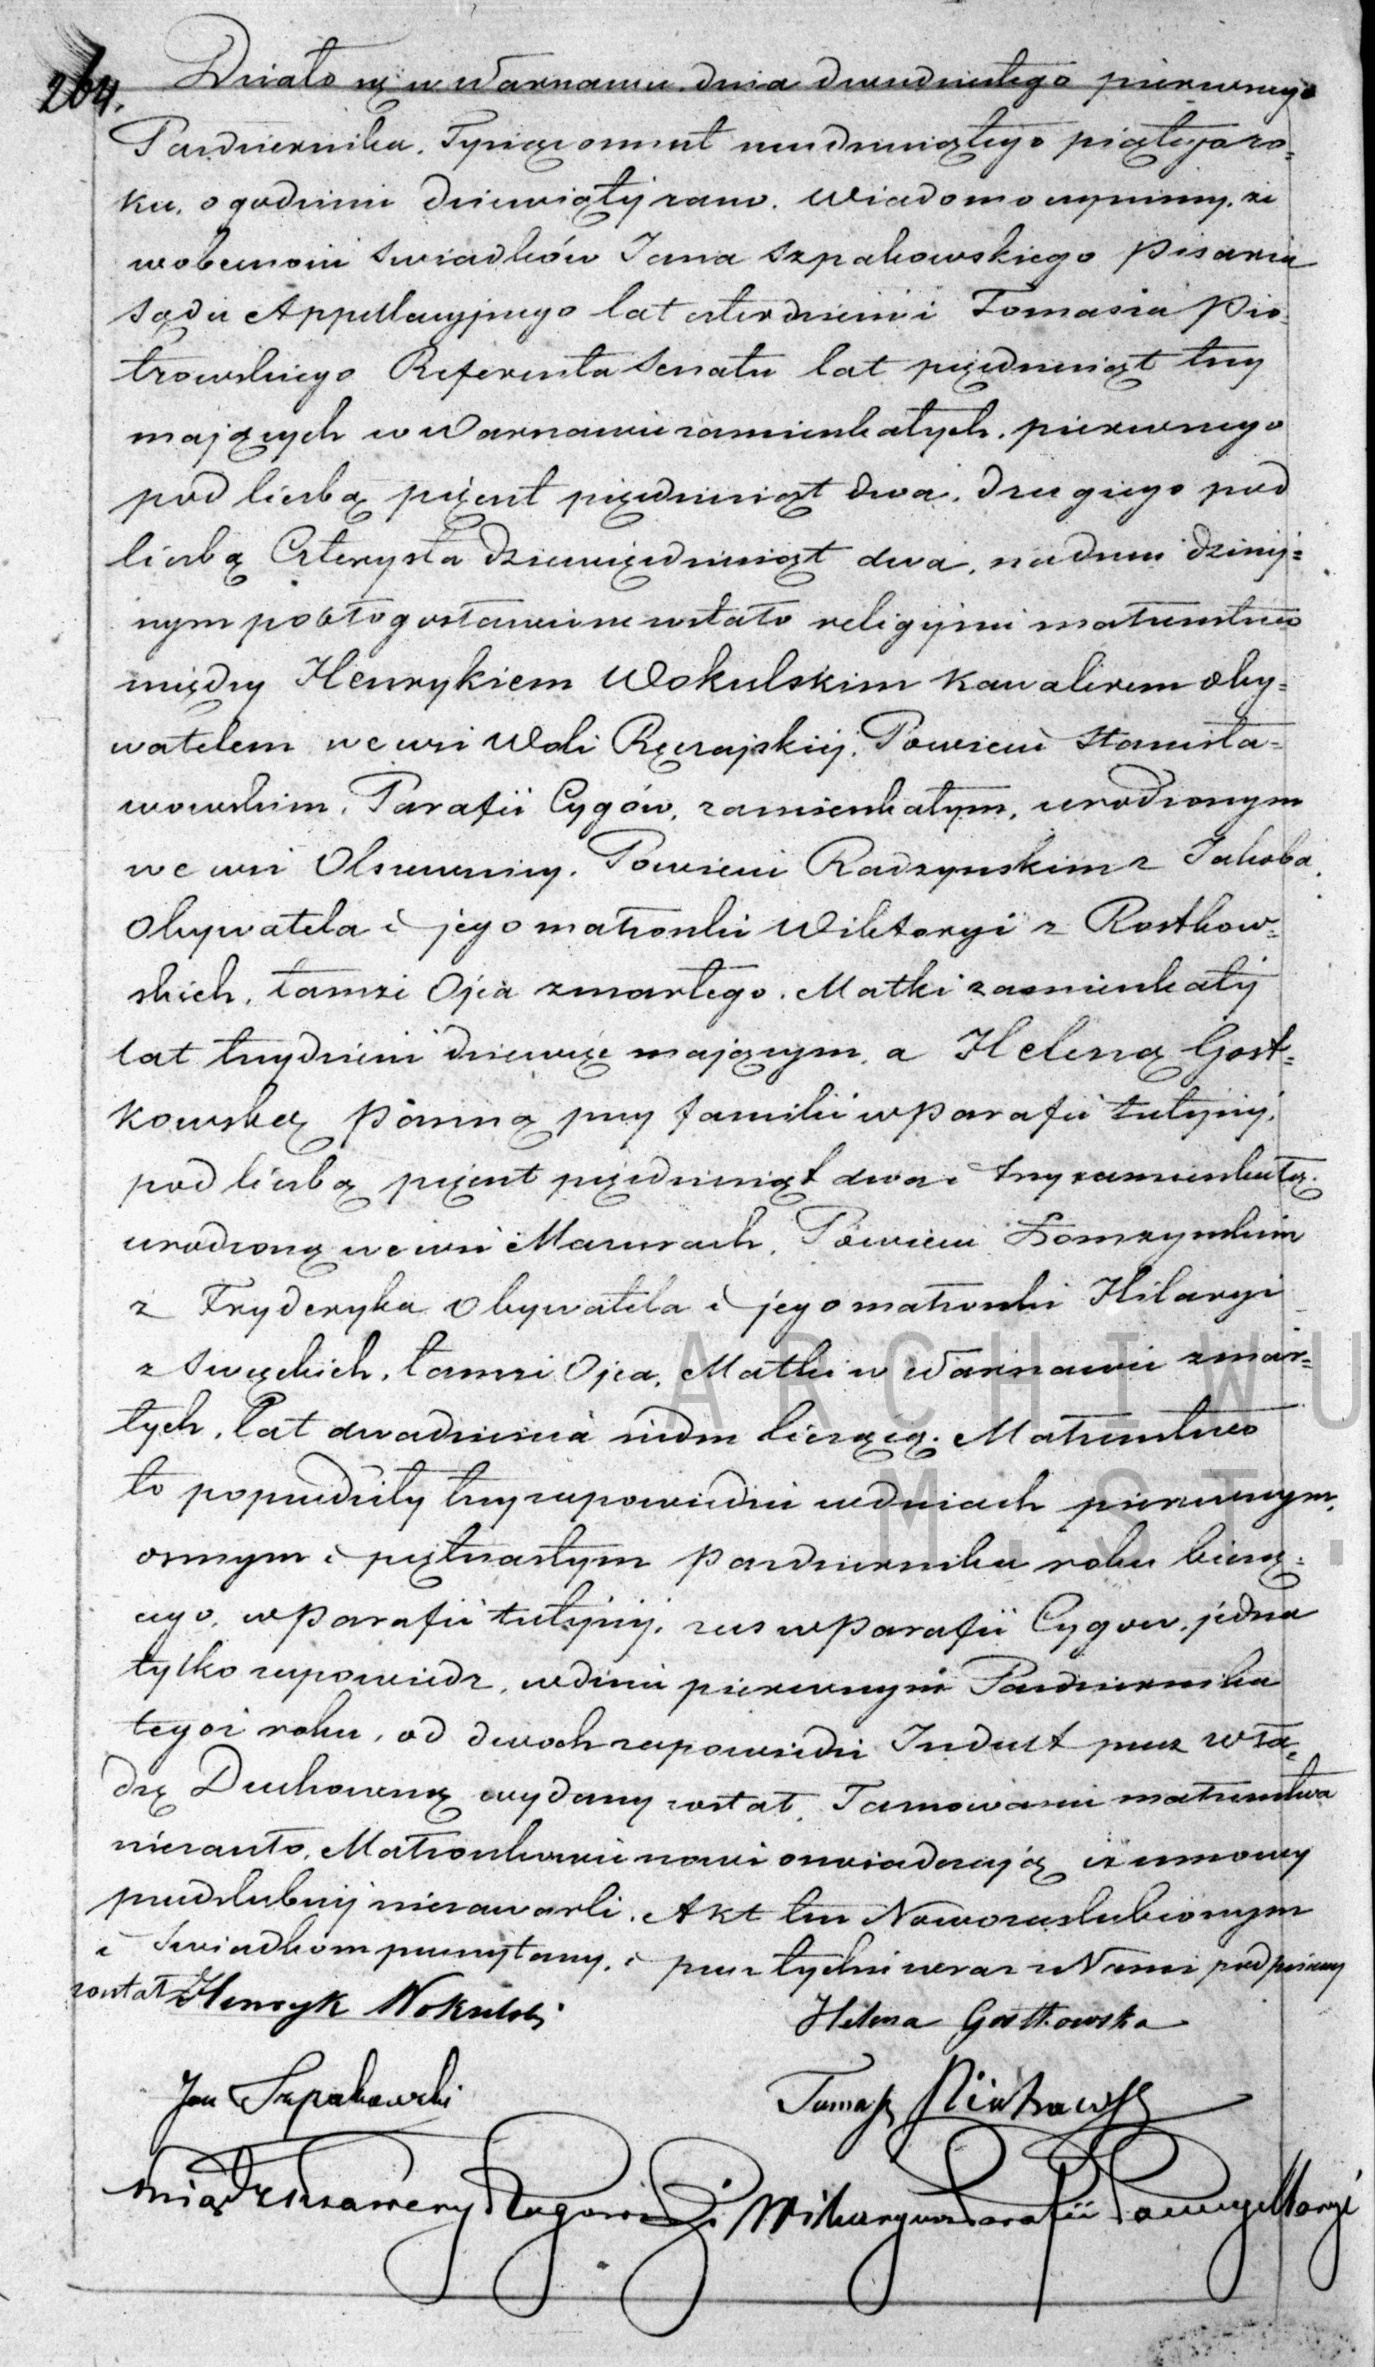 264. Działo się w Warszawie dnia dwudziestego pierwszego
Października, Tysiąc ośmset sześćdziesiątego piątego ro=
ku, o godzinie dziewiątej rano. Wiadomo czynimy, że
w obecności świadków Jana Szpakowskiego Pisarza
Sądu Appellacyjnego lat czterdzieści i Tomasza Pio=
trowskiego Referenta Senatu lat pięćdziesiąt trzy
mających w Warszawie zamieszkałych, pierwszego
pod liczbą pięćset pięćdziesiąt dwa, drugiego pod
liczbą Czterysta dziewięćdziesiąt dwa, na dniu dzisiej=
szym pobłogosławione zostało religijnie małżeństwo
między Henrykiem Wokulskim Kawalerem Oby=
watelem we wsi Woli Ręczajskiej, Powiecie Stanisła=
wowskim, Parafii Cygów, zamieszkałym, urodzonym
we wsi Olszewnicy, Powiecie Radzynskim z Jakóba
Obywatela i jego małżonki Wiktoryi z Rostkow=
skich, tamże Ojca zmarłego, Matki zamieszkałej
lat trzydzieści dziewięć mającym, a Heleną Gost=
kowską Panną przy familii w Parafii tutejszej,
pod liczbą pięćset pięćdziesiąt dwa i trzy zamieszkałą,
urodzoną we wsi Mazurach, Powiecie Łomzynskim
z Fryderyka Obywatela i jego małżonki Hilaryi
z Swięckich, tamże Ojca, Matki w Warszawie zmar=
łych, Lat dwadzieścia siedm liczącą. Małżeństwo
to poprzedziły trzy zapowiedzi w dniach pierwszym,
osmym i piętnastym Października roku bieżą=
cego, w Parafii tutejszej, zas w Parafii Cygow, jedna
tylko zapowiedz, w dniu pierwszym Października
tegoż roku, od dwoch zapowiedzi Indult przez wła=
dzę Duchowną wydany został. Tamowanie małżeństwa
nie zaszło. Małżonkowie nowi oswiadczają iż umowy
przedslubnej nie zawarli. Akt ten Nowozaslubionym
i Świadkom przeczytany, i przez tychże wraz z Nami podpisany
został Henryk Wokulski
Helena Gostkowska
Jan Szpakowski
Tomasz Piotrowski
Ksiądz Xsawery Rogowski Wikaryusz Parafii Panny Maryi
ARCHIWU
M.ST.